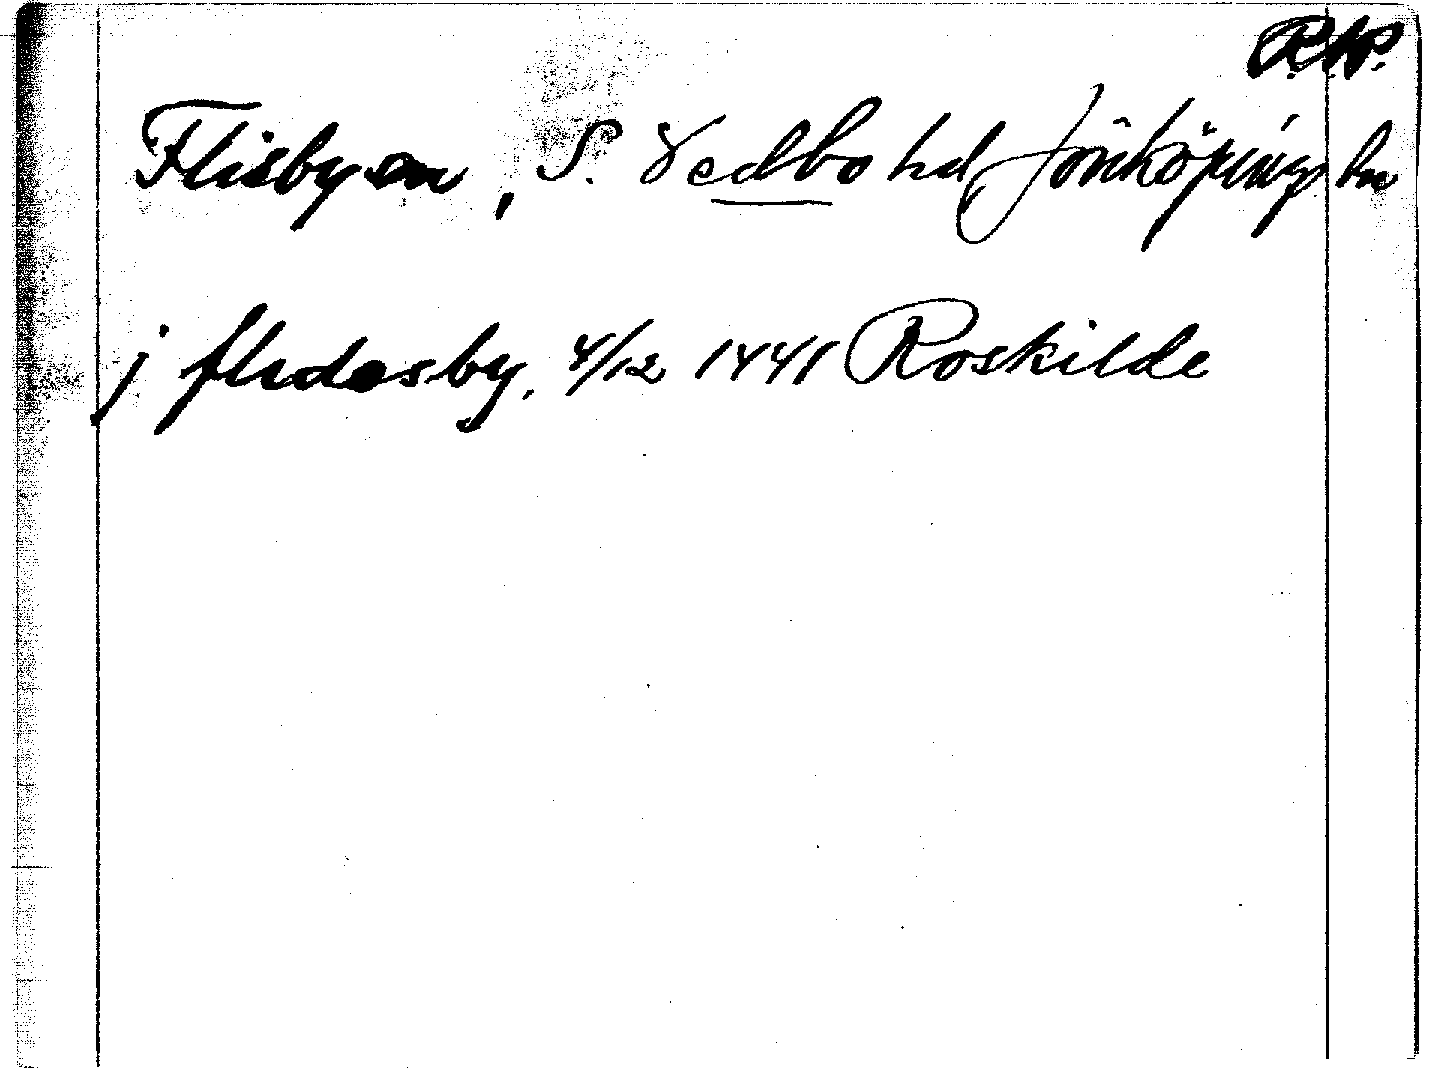 R.A.P.
Flisby sn, S. Vedbo hd Jönköpings ln
j fludesby, 4/12 1441 Roskilde